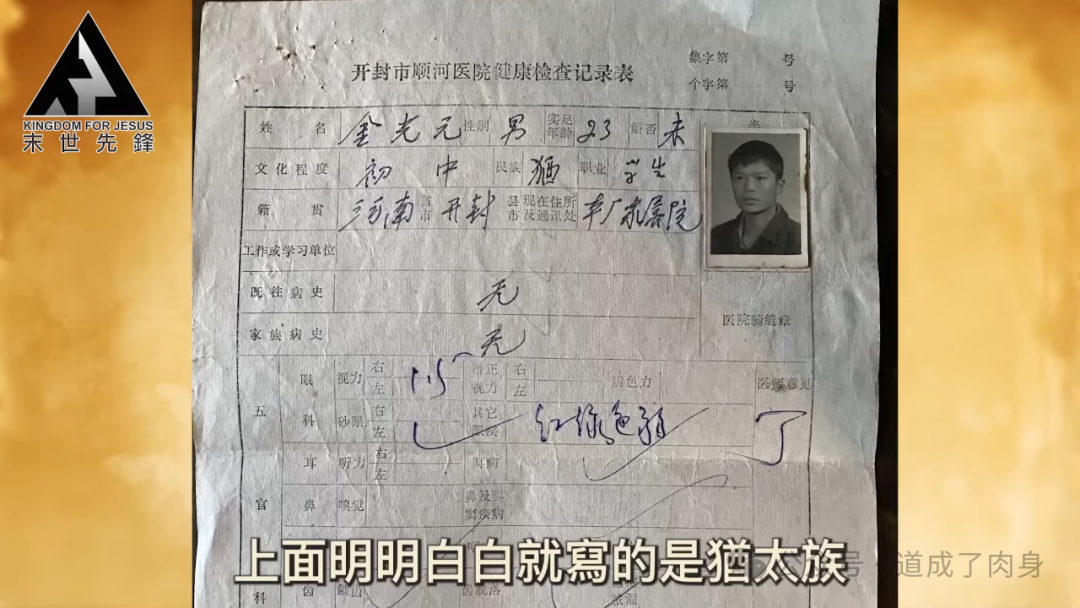 KINGDOM FOR JESUS
末世先鋒
集字第 号
开封市顺河医院健康检查记录表
个字第 号
姓名 金光元 性别 男 实足年龄 23 婚否 未
文化程度 初中 民族 猶 职业 学生
籍贯 河南 省市 开封 县市 现在住所及通讯处
工作或学习单位
既往病史 无
医院骑缝章
家族病史 无
五 官 科
眼 视力 右 左 1.5 矫正视力 右 左 辨色力 医师意见
科 砂眼 右 左 其它眼疾 红绿色弱
耳 听力 右 左 耳病
鼻 嗅觉 鼻及鼻窦疾病
上面明明白白就寫的是猶太族
号 · 道成了肉身